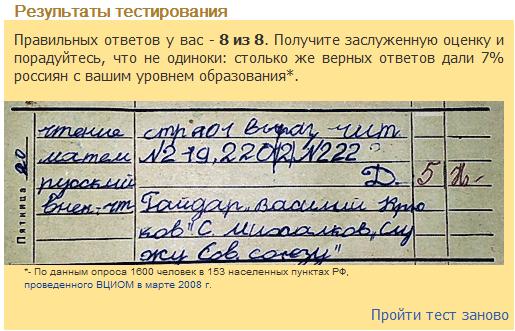 Результаты тестирования
Правильных ответов у вас - 8 из 8. Получите заслуженную оценку и
порадуйтесь, что не одиноки: столько же верных ответов дали 7%
россиян с вашим уровнем образования*.
Пятница 20
чтение стр 201 выраз чит
матем №219, 220(2), №222
русский Д. 5
внек. чт Гайдар „Василий Крю
ков" С. Михалков „Слу
жу Сов. союзу"
*- По данным опроса 1600 человек в 153 населенных пунктах РФ,
проведенного ВЦИОМ в марте 2008 г.
Пройти тест заново